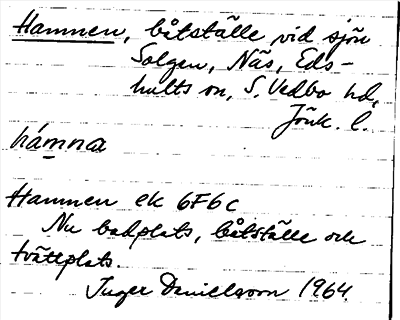 Hamnen, båtställe vid sjön
Solgen, Näs, Eds-
hults sn, S. Vedbo hd,
Jönk. l.
hámna
Hamnen ek 6F6c
Nu badplats, båtställe och
tvättplats
Inger Danielsson 1964